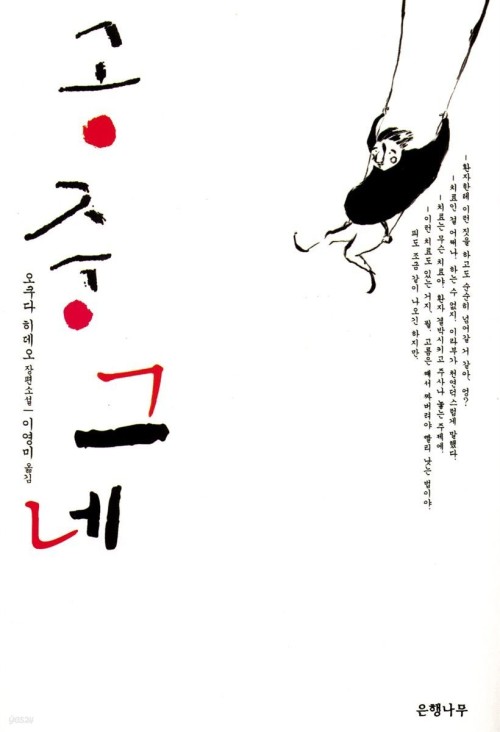 공중그네
오쿠다 히데오 장편소설 | 이영미 옮김
–환자한테 이런 짓을 하고도 순순히 넘어갈 거 같아, 엉?
–치료인 걸 어쩌나, 하는 수 없지. 이라부가 천연덕스럽게 말했다.
–치료는 무슨 치료야. 환자 결박시키고 주사나 놓는 주제에.
–이런 치료도 있는 거지, 뭘. 고름은 째서 짜버려야 빨리 낫는 법이야.
피도 조금 같이 나오긴 하지만.
은행나무
yes24